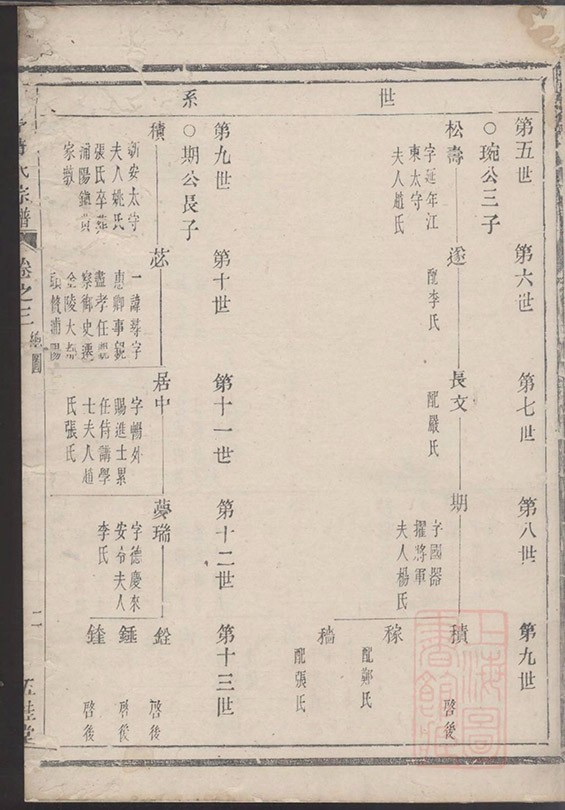 世系
第五世
第六世
第七世
第八世
第九世
琬公三子
松壽
字延年江
東太守
夫人趙氏
遂
配李氏
長文
配嚴氏
期
字國器
擢將軍
夫人楊氏
積
啓後
稼
配鄭氏
穡
配張氏
第九世
第十世
第十一世
第十二世
第十三世
期公長子
積
新安太守
夫人姚氏
張氏卒葬
浦陽鎮
家敦
苾
一諱
字
惠卿事親
盡孝任
察御史遷
金陵大
浦陽
居中
字暢外
賜進士累
任侍講學
士夫人趙
氏張氏
夢瑞
字德慶來
安令夫人
李氏
銓
啓後
錘
啓後
鏠
啓後
氏宗譜
卷之三
總圖
二
五桂堂
上海圖書館藏